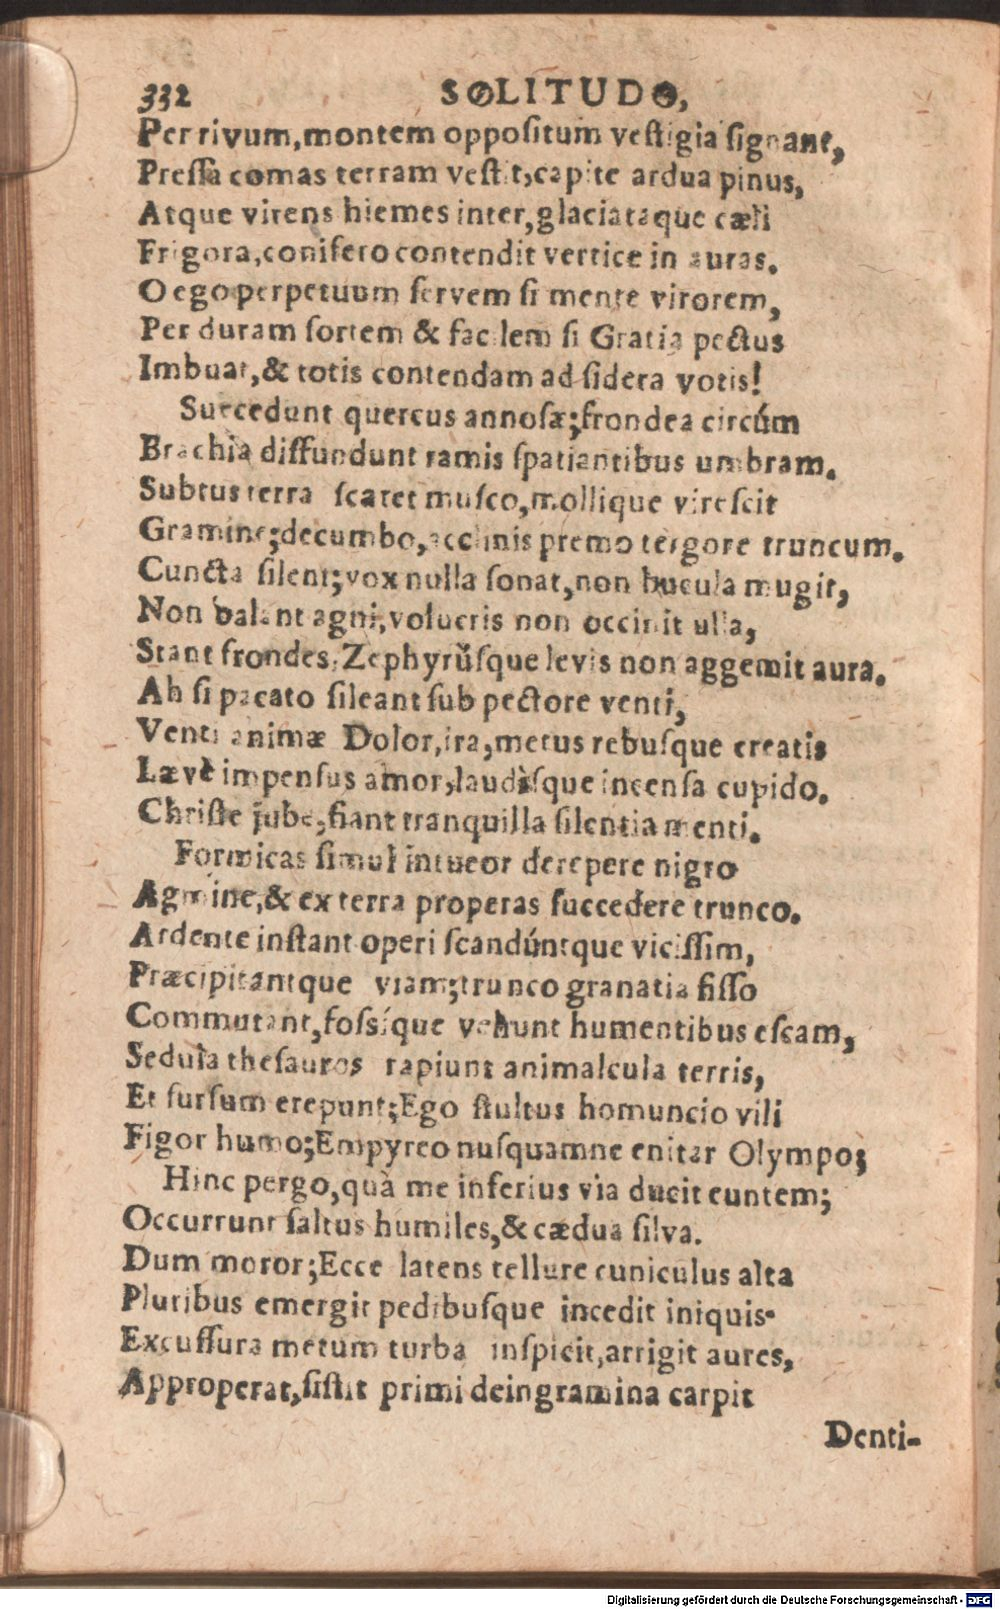 332 SOLITUDO,
Per rivum, montem oppoſitum veſtigia ſignant,
Preſſa comas terram veſtit, capite ardua pinus,
Atque virens hiemes inter, glaciataque cæli
Frigora, conifero contendit vertice in auras.
O ego perpetuum ſervem ſi mente virorem,
Per duram ſortem & facilem ſi Gratia pectus
Imbuat, & totis contendam ad ſidera votis!
Succedunt quercus annoſæ; frondea circúm
Brachia diffundunt ramis ſpatiantibus umbram.
Subtus terra ſcatet muſco, mollique vireſcit
Gramine; decumbo, acclinis premo tergore truncum.
Cuncta ſilent; vox nulla ſonat, non bucula mugit,
Non balant agni, volucris non occinit ulla,
Stant frondes, Zephyrúſque levis non aggemit aura.
Ah ſi pacato ſileant ſub pectore venti,
Venti animæ Dolor, ira, metus rebuſque creatis
Lævè impenſus amor, laudìſque incenſa cupido.
Chriſte jube, fiant tranquilla ſilentia menti.
Formicas ſimul intueor derepere nigro
Agmine, & ex terra properas ſuccedere trunco.
Ardente inſtant operi ſcandúntque viciſſim,
Præcipitantque viam; trunco granatia fiſſo
Commutant, foſsíque vehunt humentibus eſcam,
Sedula theſauros rapiunt animalcula terris,
Et ſurſum erepunt; Ego ſtultus homuncio vili
Figor humo; Empyreo nuſquamne enitar Olympo;
Hinc pergo, quà me inferius via ducit euntem;
Occurrunt ſaltus humiles, & cædua ſilva.
Dum moror; Ecce latens tellure cuniculus alta
Pluribus emergit pedibuſque incedit iniquis.
Excuſſura metum turba inſpicit, arrigit aures,
Approperat, ſiſtit primi dein gramina carpit
Denti-
Digitalisierung gefördert durch die Deutsche Forschungsgemeinschaft - DFG